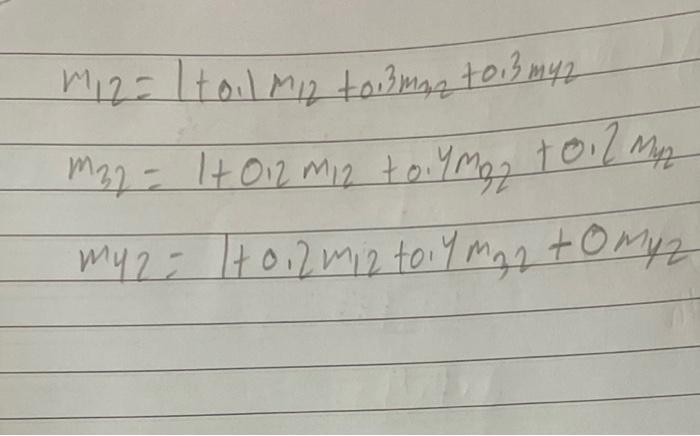 m12 = 1+0.1 m12 +0.3m32 +0.3m42
m32 = 1+0.2 m12 +0.4m32 +0.2 m42
m42 = 1+0.2m12+0.4m32+0m42